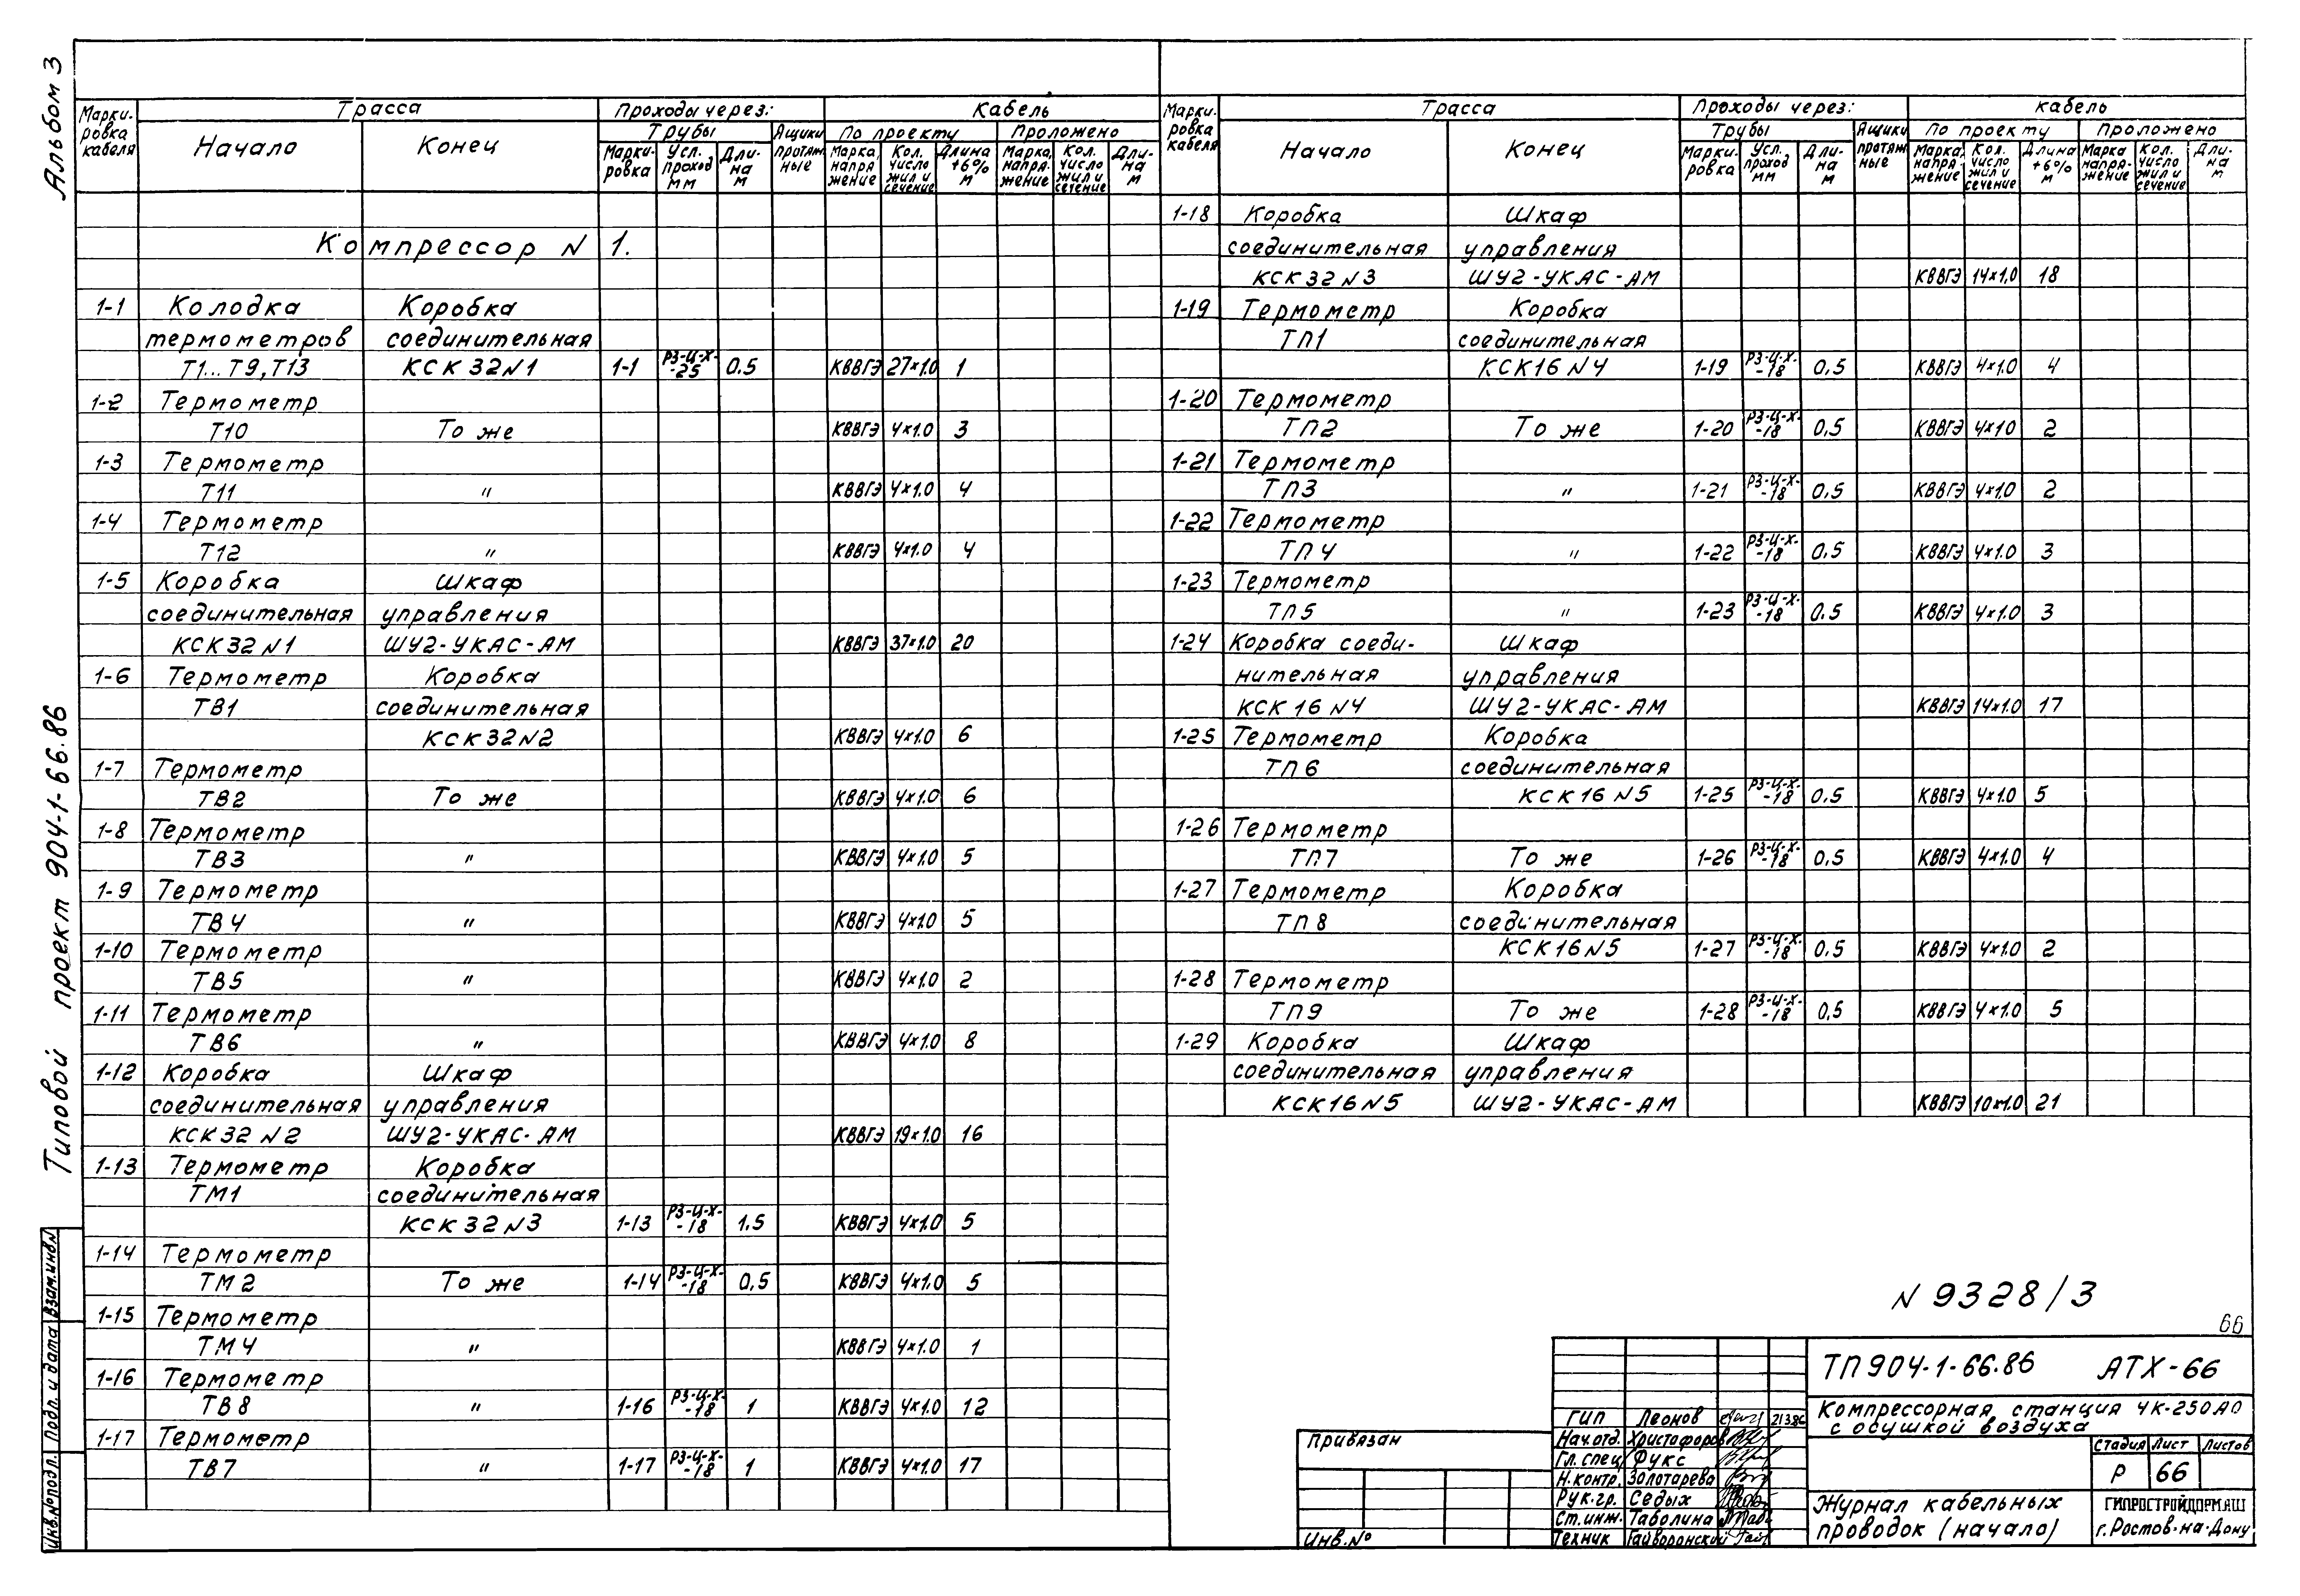 Альбом 3
Типовой проект 904-1-66.86
Взам.инв№
Подп. и дата
Инв.№подл.
Марки-ровка кабеля | Трасса | Проходы через: | Кабель
Начало | Конец | Трубы | Ящики протяж-ные | По проекту | Проложено
Марки-ровка | Усл. проход мм | Дли-на м | Марка, напря жение | Кол. число жил и сечение | Длина +6% м | Марка, напря-жение | Кол. число жил и сечение | Дли-на м
Компрессор N 1.
1-1 Колодка Коробка
термометров соединительная
Т1...Т9,Т13 КСК32N1 1-1 РЗ-Ц-Х--25 0.5 КВВГЭ 27×1.0 1
1-2 Термометр
Т10 То же КВВГЭ 4×1.0 3
1-3 Термометр
Т11 " КВВГЭ 4×1.0 4
1-4 Термометр
Т12 " КВВГЭ 4×1.0 4
1-5 Коробка Шкаф
соединительная управления
КСК32N1 ШУ2-УКАС-АМ КВВГЭ 37×1.0 20
1-6 Термометр Коробка
ТВ1 соединительная
КСК32N2 КВВГЭ 4×1.0 6
1-7 Термометр
ТВ2 То же КВВГЭ 4×1.0 6
1-8 Термометр
ТВ3 " КВВГЭ 4×1.0 5
1-9 Термометр
ТВ4 " КВВГЭ 4×1.0 5
1-10 Термометр
ТВ5 " КВВГЭ 4×1.0 2
1-11 Термометр
ТВ6 " КВВГЭ 4×1.0 8
1-12 Коробка Шкаф
соединительная управления
КСК32N2 ШУ2-УКАС-АМ КВВГЭ 19×1.0 16
1-13 Термометр Коробка
ТМ1 соединительная
КСК32N3 1-13 РЗ-Ц-Х--18 1.5 КВВГЭ 4×1.0 5
1-14 Термометр
ТМ2 То же 1-14 РЗ-Ц-Х--18 0,5 КВВГЭ 4×1,0 5
1-15 Термометр
ТМ4 " КВВГЭ 4×1.0 1
1-16 Термометр
ТВ8 " 1-16 РЗ-Ц-Х--18 1 КВВГЭ 4×1.0 12
1-17 Термометр
ТВ7 " 1-17 РЗ-Ц-Х--18 1 КВВГЭ 4×1.0 17
Марки-ровка кабеля | Трасса | Проходы через: | Кабель
Начало | Конец | Трубы | Ящики протяж ные | По проекту | Проложено
Марки-ровка | Усл. проход мм | Дли-на м | Марка, напря-жение | Кол. число жил и сечение | Длина +6% м | Марка напря-жение | Кол. число жил и сечение | Дли-на м
1-18 Коробка Шкаф
соединительная управления
КСК32N3 ШУ2-УКАС-АМ КВВГЭ 14×1.0 18
1-19 Термометр Коробка
ТП1 соединительная
КСК16N4 1-19 РЗ-Ц-Х--18 0,5 КВВГЭ 4×1.0 4
1-20 Термометр
ТП2 То же 1-20 РЗ-Ц-Х--18 0,5 КВВГЭ 4×10 2
1-21 Термометр
ТП3 " 1-21 РЗ-Ц-Х--18 0.5 КВВГЭ 4×1.0 2
1-22 Термометр
ТП4 " 1-22 РЗ-Ц-Х--18 0.5 КВВГЭ 4×1.0 3
1-23 Термометр
ТП5 " 1-23 РЗ-Ц-Х--18 0.5 КВВГЭ 4×1.0 3
1-24 Коробка соеди- Шкаф
нительная управления
КСК16N4 ШУ2-УКАС-АМ КВВГЭ 14×1.0 17
1-25 Термометр Коробка
ТП6 соединительная
КСК16N5 1-25 РЗ-Ц-Х--18 0.5 КВВГЭ 4×1.0 5
1-26 Термометр
ТП7 То же 1-26 РЗ-Ц-Х--18 0.5 КВВГЭ 4×1.0 4
1-27 Термометр Коробка
ТП8 соединительная
КСК16N5 1-27 РЗ-Ц-Х--18 0.5 КВВГЭ 4×1.0 2
1-28 Термометр
ТП9 То же 1-28 РЗ-Ц-Х--18 0,5 КВВГЭ 4×1.0 5
1-29 Коробка Шкаф
соединительная управления
КСК16N5 ШУ2-УКАС-АМ КВВГЭ 10×1.0 21
N 9328/3
66
ТП904-1-66.86 АТХ-66
Компрессорная станция 4К-250А0
с осушкой воздуха
Стадия Лист Листов
Р 66
Журнал кабельных
проводок (начало)
ГИПРОСТРОЙДОРМАШ
г.Ростов-на-Дону
ГИП Леонов 21386
Нач.отд. Христофоров
Гл.спец Фукс
Н.контр. Золотарева
Рук.гр. Седых
Ст.инж. Таболина
Техник Гайворонский
Привязан
Инв.№